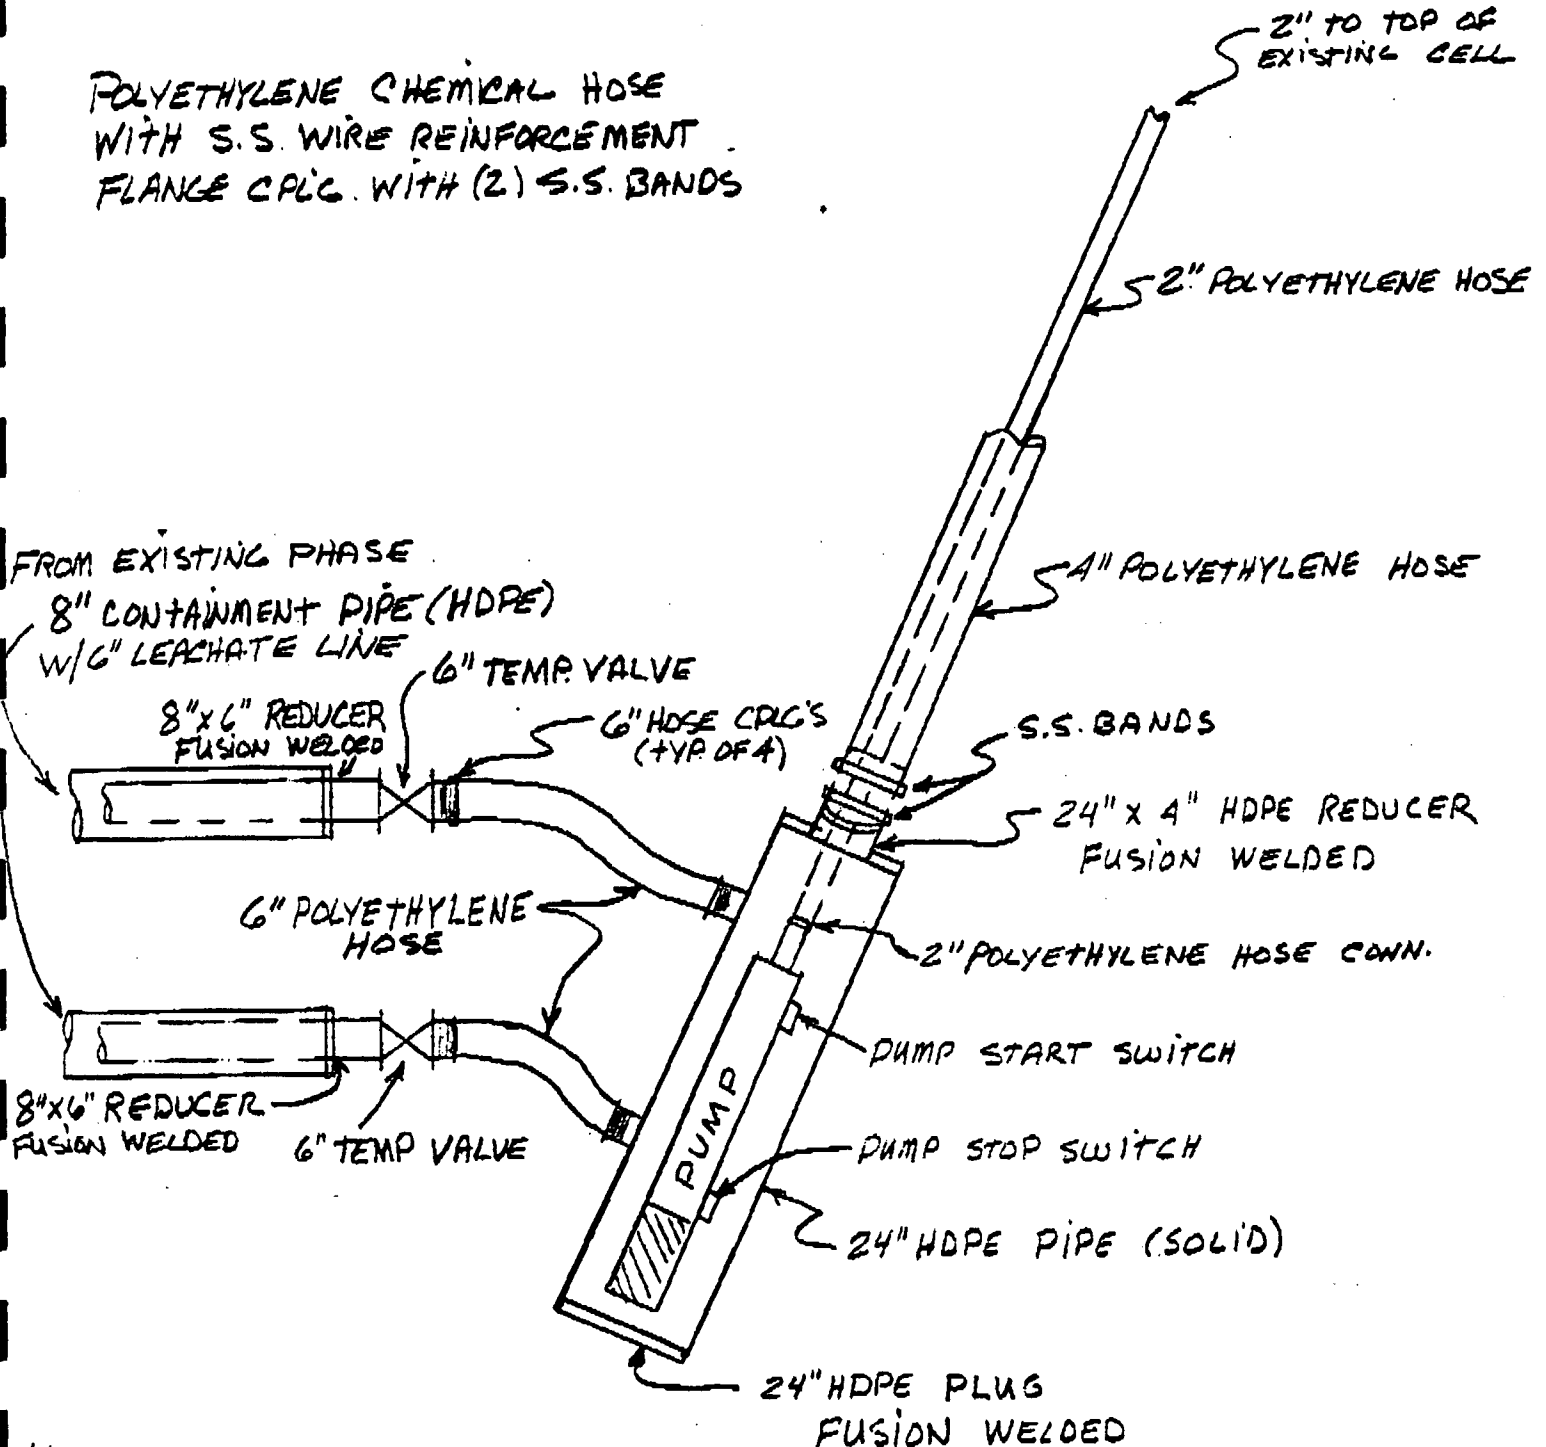 POLYETHYLENE CHEMICAL HOSE
WITH S.S. WIRE REINFORCEMENT
FLANGE CPL'G. WITH (2) S.S. BANDS
2" TO TOP OF
EXISTING CELL
2" POLYETHYLENE HOSE
4" POLYETHYLENE HOSE
FROM EXISTING PHASE
8" CONTAINMENT PIPE (HDPE)
W/6" LEACHATE LINE
6" TEMP. VALVE
8"x6" REDUCER
FUSION WELDED
6" HOSE CPLG'S
(TYP. OF 4)
S.S. BANDS
24" x 4" HDPE REDUCER
FUSION WELDED
6" POLYETHYLENE
HOSE
2" POLYETHYLENE HOSE CONN.
PUMP START SWITCH
PUMP
8"x6" REDUCER
FUSION WELDED
6" TEMP VALVE
PUMP STOP SWITCH
24" HDPE PIPE (SOLID)
24" HDPE PLUG
FUSION WELDED